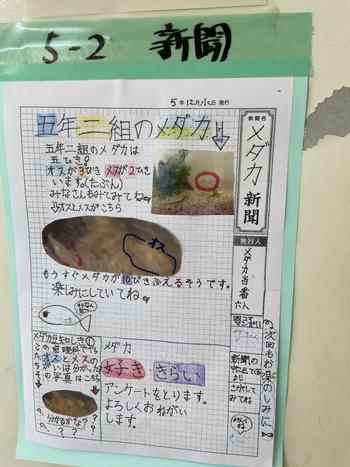 5-2 新聞
5年12月 日発行
五年二組のメダカ
五年二組のメダカは
五ひき!
オスが3びきメスが2ひき
います。(たぶん)
みなさんもみてみてね
↓オスとメスがこちら
オス
もうすぐメダカが10ぴきふえるそうです。
楽しみにしていてね
メダカ豆ちしき①
この前理科でならった
オスとメスの
ちがいは分かった?
その写真はこちら
分かるかな?
? ? ?
メダカ
好き きらい
アンケートをとります。
よろしくおねがい
します。
新聞名
メダカ新聞
発行人
メダカ当番
六人
新聞の
みてね
次回もお楽しみに!